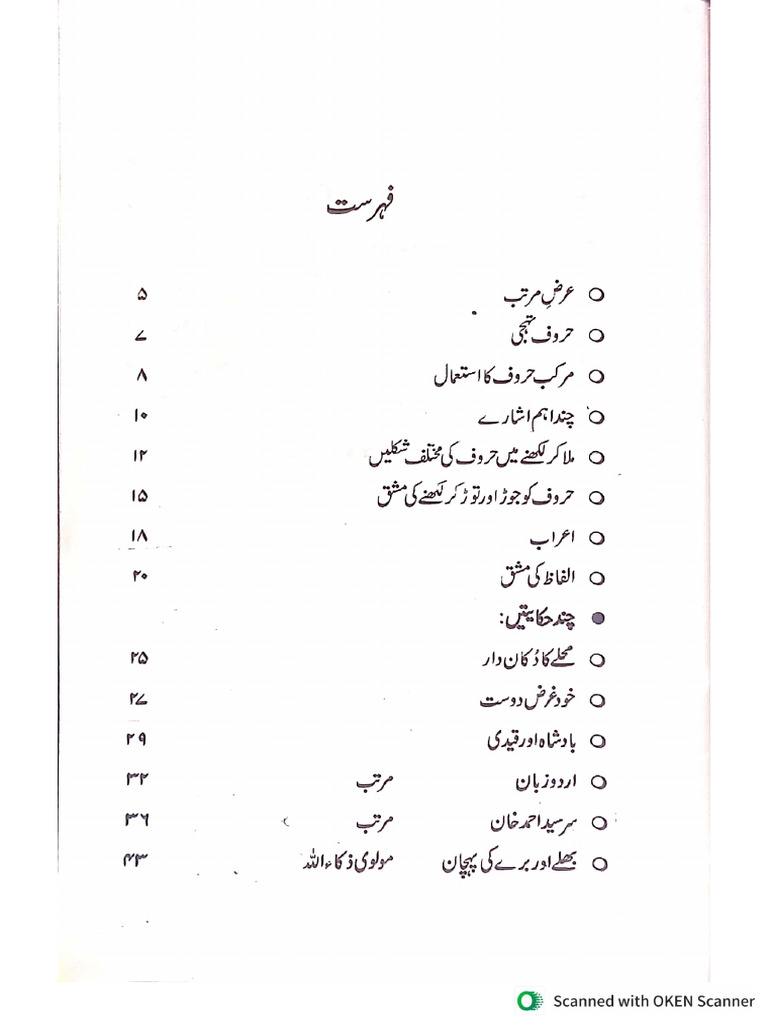 فہرست
عرضِ مرتب ۵
حروف تہجی ۷
مرکب حروف کا استعمال ۸
چند اہم اشارے ۱۰
ملا کر لکھنے میں حروف کی مختلف شکلیں ۱۲
حروف کو جوڑ اور توڑ کر لکھنے کی مشق ۱۵
اعراب ۱۸
الفاظ کی مشق ۲۰
چند حکایتیں:
محلے کا دُکان دار ۲۵
خود غرض دوست ۲۷
بادشاہ اور قیدی ۲۹
اردو زبان مرتب ۳۲
سرسید احمد خان مرتب ۳۶
بھلے اور برے کی پہچان مولوی ذکاء اللہ ۴۳
Scanned with OKEN Scanner